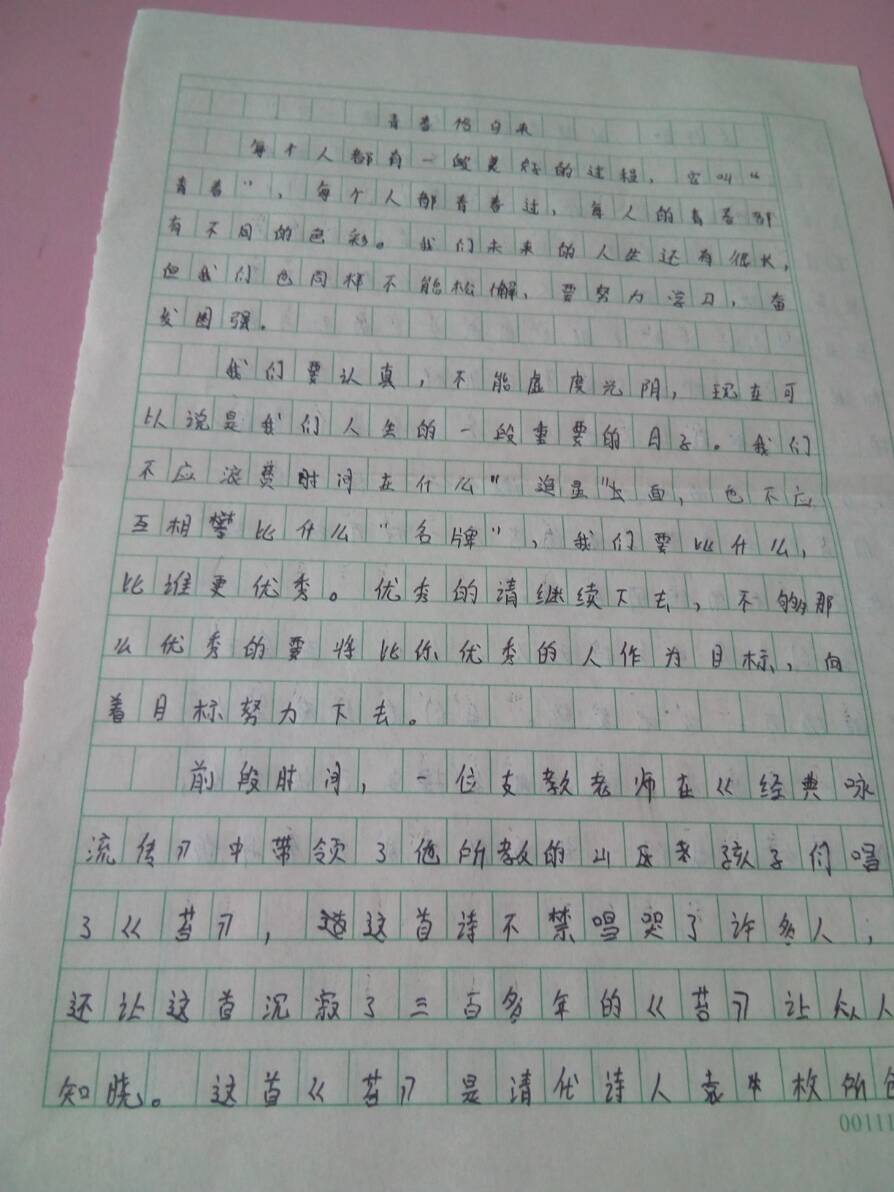 青春恰自来
每个人都有一段美好的过程，它叫“
青春”，每个人都青春过，每人的青春都
有不同的色彩。我们未来的人生还有很长，
但我们也同样不能松懈，要努力学习，奋
发图强。
我们要认真，不能虚度光阴，现在可
以说是我们人生的一段重要的日子。我们
不应浪费时间在什么“追星”上面，也不应
互相攀比什么“名牌”，我们要比什么，
比谁更优秀。优秀的请继续下去，不够那
么优秀的要将比你优秀的人作为目标，向
着目标努力下去。
前段时间，一位支教老师在《经典咏
流传》中带领了他所教的山区孩子们唱
了《苔》，这首诗不禁唱哭了许多人，
还让这首沉寂了三百多年的《苔》让众人
知晓。这首《苔》是清代诗人袁枚所
00111